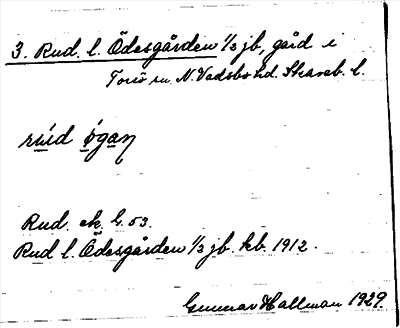 3. Rud. l. Ödesgården 1/2 jb, gård i
Torsö sn. N. Vadsbo hd. Skarab. l.
rúd ǿgan
Rud. ek. b. 53.
Rud l. Ödesgården 1/2 jb. kb. 1912.
Gunnar Hallman 1929.